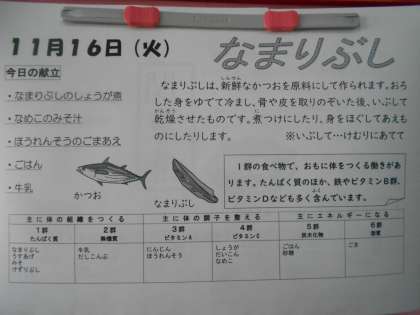 11月16日(火)
なまりぶし
今日の献立
・なまりぶしのしょうが煮
・なめこのみそ汁
・ほうれんそうのごまあえ
・ごはん
・牛乳
なまりぶしは、新鮮なかつおを原料にして作られます。おろ
した身をゆでて冷まし、骨や皮を取りのぞいた後、いぶして
乾燥させたものです。煮つけにしたり、身をほぐしてあえも
のにしたりします。
※いぶして…けむりにあてて
かつお
なまりぶし
1群の食べ物で、おもに体をつくる働きがあ
ります。たんぱく質のほか、鉄やビタミンB群、
ビタミンDなども多く含んでいます。
主に体の組織をつくる
主に体の調子を整える
主にエネルギーになる
1群 たんぱく質
2群 無機質
3群 ビタミンA
4群 ビタミンC
5群 炭水化物
6群 脂質
なまりぶし
うすあげ
みそ
けずりぶし
牛乳
だしこんぶ
にんじん
ほうれんそう
しょうが
だいこん
なめこ
ごはん
砂糖
ごま